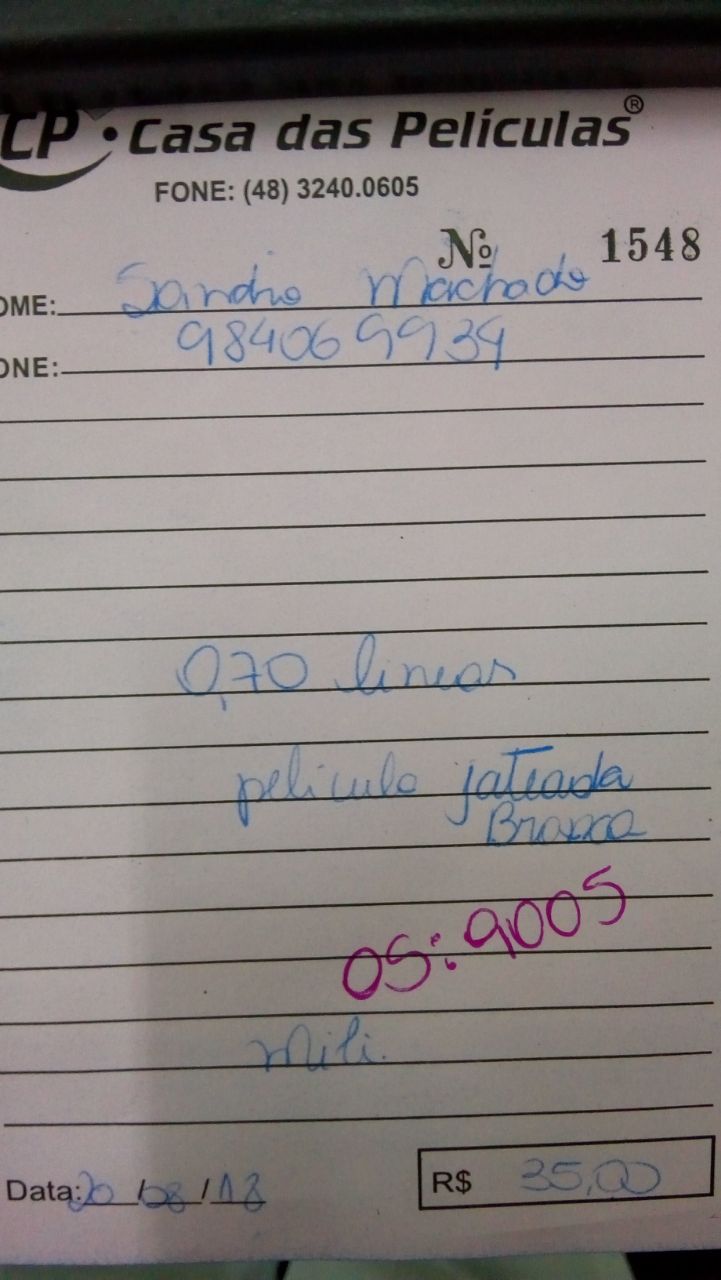 CP • Casa das Películas®
FONE: (48) 3240.0605
Nº 1548
OME: Sandro Machado
ONE: 984069934
0,70 linear
pelicula jateada
Branca
OS: 9005
Mili.
Data: 20/08/18
R$ 35,00